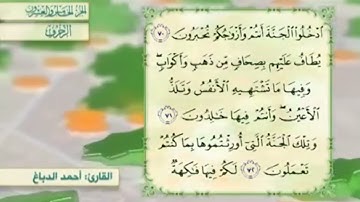 الجزء الخامس والعشرون
الزخرف
ٱدْخُلُوا۟ ٱلْجَنَّةَ أَنتُمْ وَأَزْوَٰجُكُمْ تُحْبَرُونَ ٧٠
يُطَافُ عَلَيْهِم بِصِحَافٍ مِّن ذَهَبٍ وَأَكْوَابٍ ۖ
وَفِيهَا مَا تَشْتَهِيهِ ٱلْأَنفُسُ وَتَلَذُّ
ٱلْأَعْيُنُ ۖ وَأَنتُمْ فِيهَا خَٰلِدُونَ ٧١
وَتِلْكَ ٱلْجَنَّةُ ٱلَّتِىٓ أُورِثْتُمُوهَا بِمَا كُنتُمْ
تَعْمَلُونَ ٧٢ لَكُمْ فِيهَا فَٰكِهَةٌ
القارئ: أحمد الدباغ